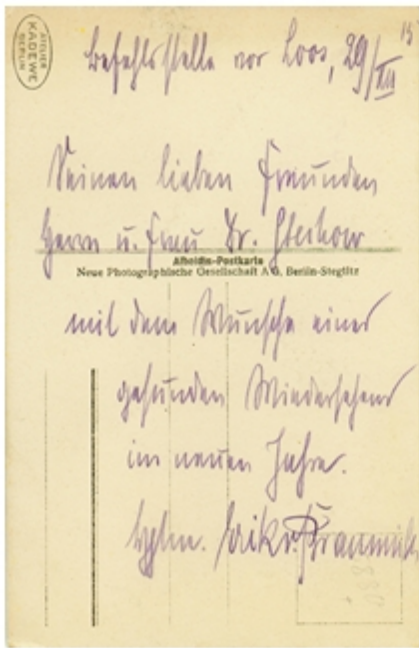 ATELIER
KADEWE
BERLIN
Befehlsstelle vor Loos, 29/XII 15
Seinen lieben Freunden
Herrn u. Frau Dr. Stechow
Postkarte
Neue Photographische Gesellschaft A.G., Berlin-Steglitz
mit dem Wunsche eines
gesunden Wiedersehens
im neuen Jahre.
Hptm.